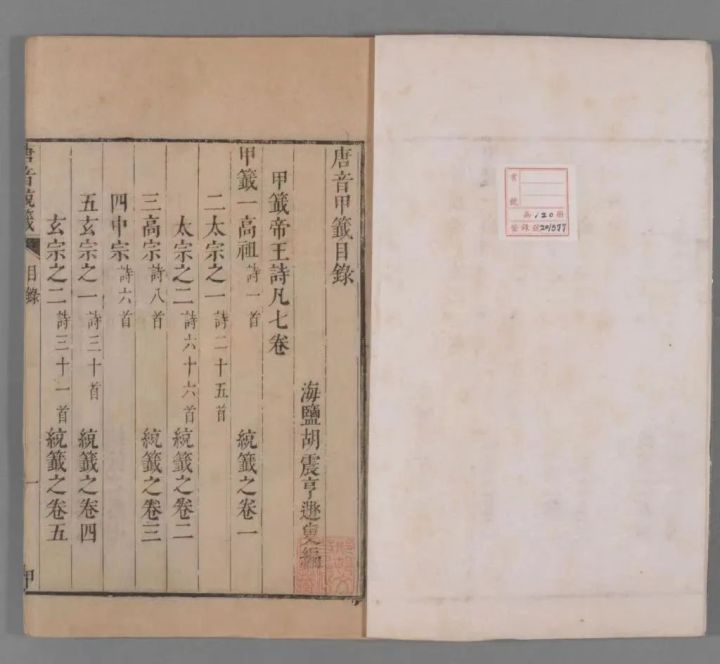 唐音甲籤目錄
海鹽胡震亨遯叟編
甲籤帝王詩凡七卷
甲籤一高祖詩一首 統籤之卷一
二太宗之一詩二十五首
太宗之二詩六十六首 統籤之卷二
三高宗詩八首 統籤之卷三
四中宗詩六首
五玄宗之一詩三十首 統籤之卷四
玄宗之二詩三十一首 統籤之卷五
唐音統籤 目錄 甲
共120冊
登錄號201577